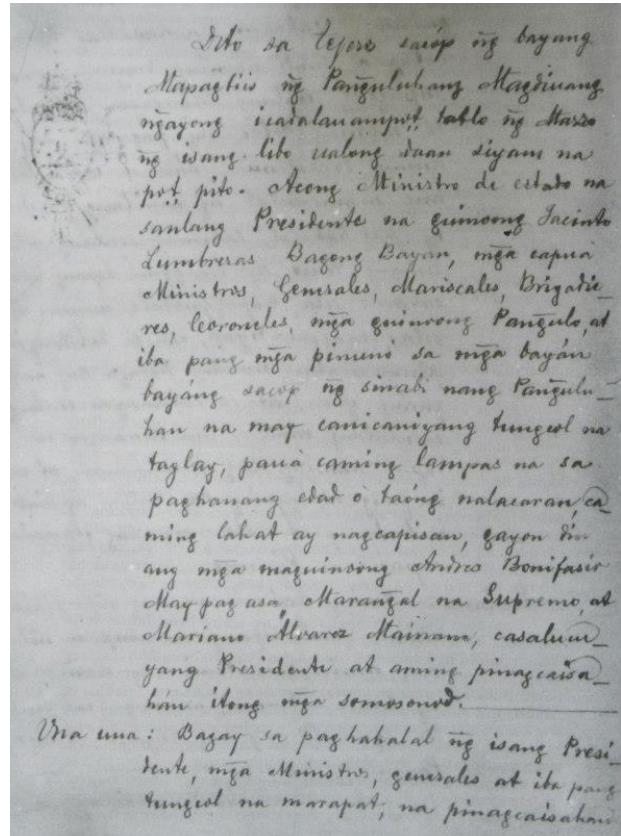 Dito sa Tejero sacóp ng̃ bayang
Mapagtiis ng̃ Pang̃uluhang Magdiuang
ng̃ayong icadalauampo't, tatlo ng̃ Marzo
ng̃ isang libo ualong daan siyam na
po't, pito. Acong Ministro de estado na
sanlang Presidente na guinoong Jacinto
Lumbreras Bagong Bayan, mg̃a capua
Ministros, Generales, Mariscales, Brigadie-
res, Coroneles, mg̃a guinoong Pang̃ulo, at
iba pang mg̃a pinunó sa mg̃a bayán
bayáng sacóp ng̃ sinabi nang Pang̃ulu-
han na may canicaniyang tungcol na
taglay, pauà caming lampas na sa
paghanang edad ó taóng nalacaran, ca-
ming lahat ay nagcapisan, gayon din
ang mg̃a maguinoong Andres Bonifasio
May pag asa, Marang̃al na Supremo, at
Mariano Álvarez Mainam, casalucu-
yang Presidente at aming pinagcaisa-
hán itong mg̃a somosonod.
Una una: Bagay sa paghahalal ng̃ isang Presi-
dente, mg̃a Ministros, generales at iba pang
tungcol na marapat, na pinagcaisahan